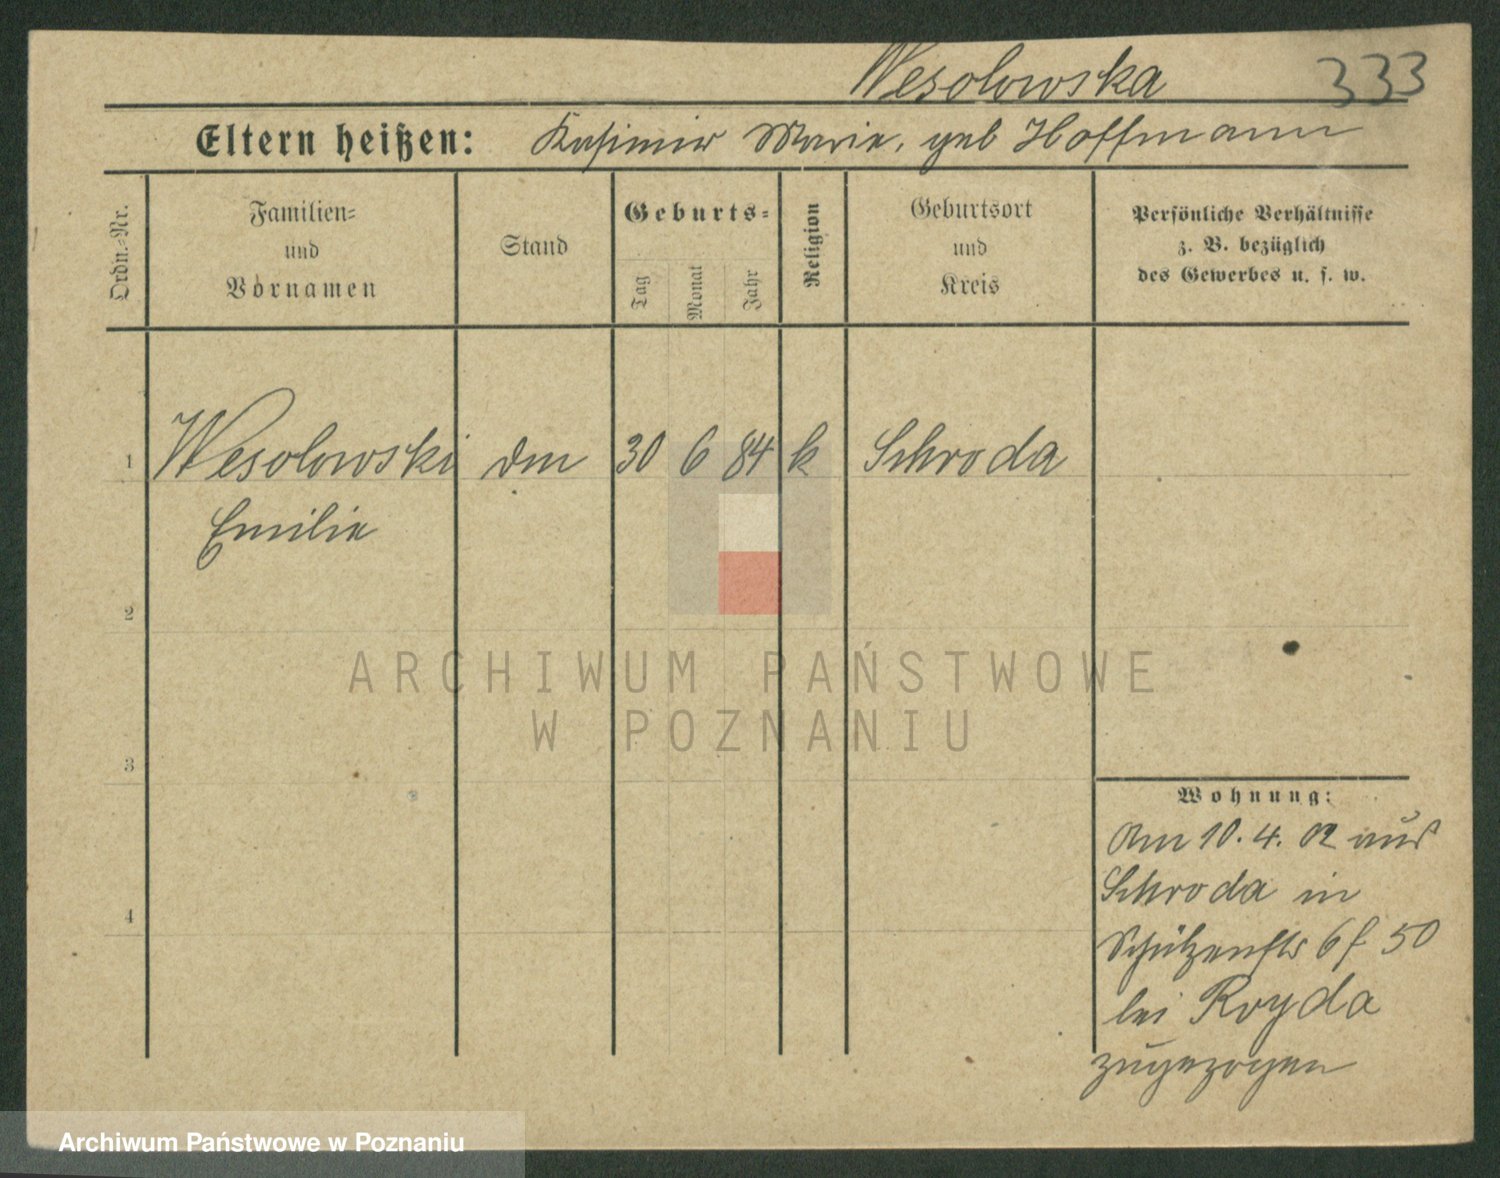 Wesolowska 333
Eltern heißen: Kasimir Marie, geb Hoffmann
Ordn.-Nr.
Familien-
und
Vornamen
Stand
Geburts-
Tag
Monat
Jahr
Religion
Geburtsort
und
Kreis
Persönliche Verhältnisse
z. B. bezüglich
des Gewerbes u. s. w.
1 Wesolowski 30 6 84 k Schroda
Emilie
2
3
4
Wohnung:
Am 10. 4. 02 aus
Schroda in
Schützenstr 6 f 50
bei Royda
zugezogen
ARCHIWUM PAŃSTWOWE
W POZNANIU
Archiwum Państwowe w Poznaniu